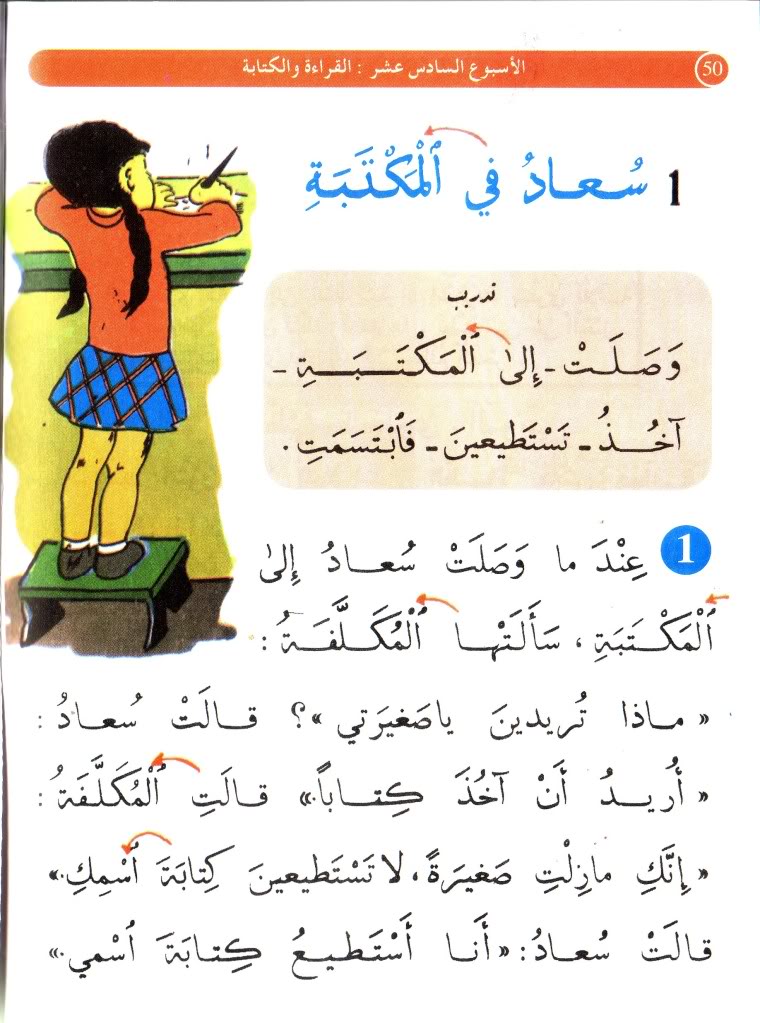 50 الأسبوع السادس عشر : القراءة والكتابة
1 سُعادُ في ٱلْمَكْتَبَةِ
تدريب
وَصَلَتْ - إِلىٰ ٱلْمَكْتَبَةِ -
آخُذُ - تَسْتَطيعينَ - فَٱبْتَسَمَتِ .
1 عِنْدَ ما وَصَلَتْ سُعادُ إِلىٰ
ٱلْمَكْتَبَةِ ، سَأَلَتْها ٱلْمُكَلَّفَةُ :
« ماذا تُريدينَ ياصَغيرَتي »؟ قالَتْ سُعادُ :
« أُريدُ أَنْ آخُذَ كِتاباً.» قالَتِ ٱلْمُكَلَّفَةُ :
« إِنَّكِ مازِلْتِ صَغيرَةً، لا تَسْتَطيعينَ كِتابَةَ ٱسْمِكِ.»
قالَتْ سُعادُ: «أَنا أَسْتَطيعُ كِتابَةَ ٱسْمي.»